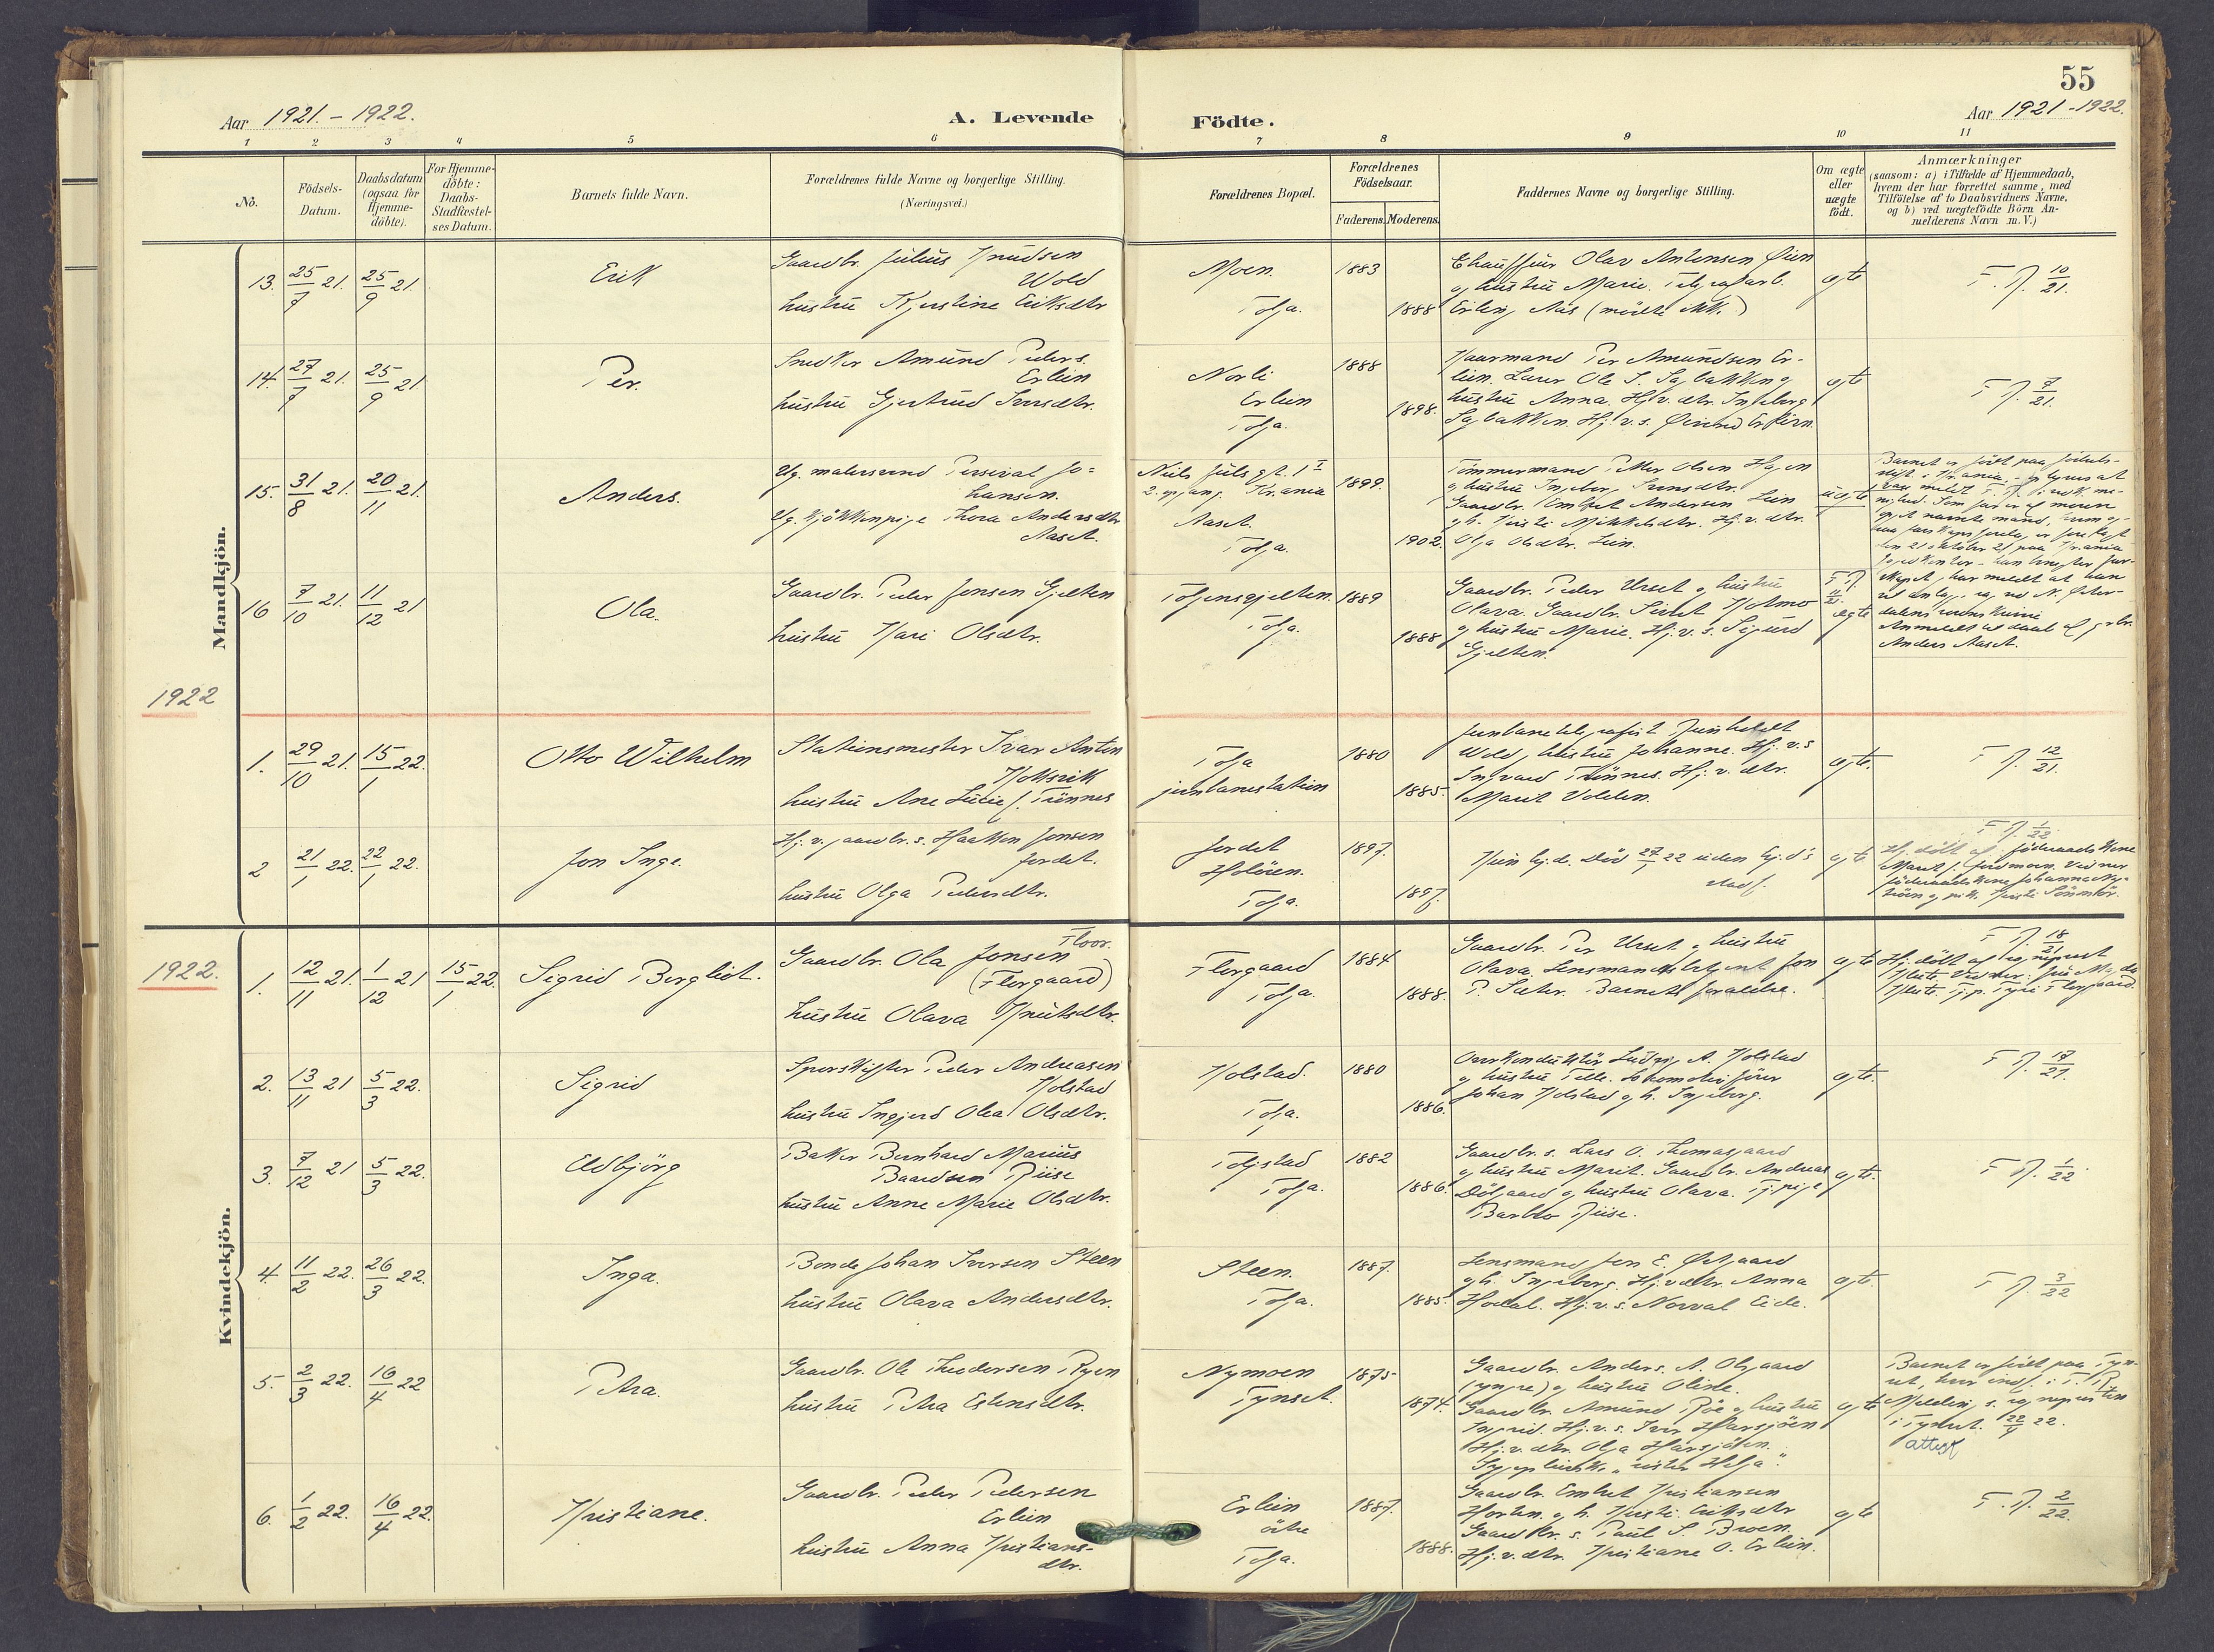 55
Aar 1921.-1922.
A. Levende
Födte.
Aar 1921-1922.
1 2 3 4 5 6 7 8 9 10 11
No.
Födsels-
Datum.
Daabsdatum
(ogsaa for
Hjemme-
döbte).
For Hjemme-
döbte:
Daabs-
Stadfæstel-
ses Datum.
Barnets fulde Navn.
Forældrenes fulde Navne og borgerlige Stilling.
(Næringsvei.)
Forældrenes Bopæl.
Forældrenes
Födselsaar.
Faderens. Moderens.
Faddernes Navne og borgerlige Stilling.
Om ægte
eller
uægte
födt.
Anmærkninger
(saasom: a) i Tilfælde af Hjemmedaab,
hvem der har forrettet samme, med
Tilföielse af to Daabsvidners Navne,
og b) ved uægtefödte Börn An-
melderens Navn m. V.)
Mandkjön.
13. 25/7 21. 25/9 21.
Erik
Gaardbr. Julius Knudsen
Wold
hustru Kjerstine Eriksdtr
Moen.
Tolga.
1883
1888
Chauffeur Olav Antonsen Øien
og hustru Marie. Telegrafarb.
Erling Aas (mødte ikke.)
egte
F. R. 10/21.
14. 27/7 21. 25/9 21
Per.
Snedker Amund Peders.
Erlien
hustru Gjertrud Iversdtr.
Norli
Erlien
Tolga.
1888
1898.
Haarmand Per Amundsen Er-
lien. Lærer Ole I. Sagbakken og
hustru Anna. Hj. v. dtr. Ingeborg
Sagbakken. Hj. v. s. Øivind Erlien.
egte
F R. 7/21.
15. 31/8 21. 20/11 21.
Anders.
Ug. malersvend Perseval Jo-
hansen.
Ug. kjøkkenpige Thora Andersdtr
Aaset.
Niels Juels gt. 1 I
2. opgang. Kr.ania
Aaset.
Tolga.
1899.
1902.
Tömmermand Petter Olsen Hagen
og hustru Ingeborg Iversdtr.
Gaardbr. Embret Andersen Lien
og h. Kristi Mikkelsdtr. Hj. v. dtr.
Olga Olsdtr. Lien.
uegte
Barnet er født paa fødsels-
Anmeldt til daab af gbr.
Anders Aaset.
16 7/10 21. 11/12 21
Ola.
Gaardbr. Peder Jonsen Gjelten
hustru Kari Olsdtr.
Tolgensgjelten.
Tolga.
1889
1888
Gaardbr. Peder Urset og hustru
Olava. Gaardbr. Sivert Holmo
og hustru Marie. Hj. v. s. Sigurd
Gjelten.
F R.
egte
1922
1. 29/10 21. 15/1 22.
Otto Wilhelm
Stationsmester Ivar Anton
Hoksrik
hustru Ane Lucie f. Trønnes
Tolga
jernbanestation
1880
1885.
Jernbanetelegrafist Reinholdt
Wold, hustru Johanne. Hj. v. s
Ingvard Trönnes. Hj. v. dtr.
Marit Volden.
egte.
F R. 12/21.
2 21/1 22. 22/1 22.
Jon Inge.
Hj. v. gaardbr. s. Haakon Jonsen
Jordet.
hustru Olga Pedersdtr.
Jordet
Holöien.
Tolga.
1897.
1897.
Død 27/1 22 uden
stadf.
egte
F R. 1/22
Hj. döbt af föderaadskone
1922.
Kvindekjön.
1. 12/11 21. 1/12 21 15/1 22.
Sigrid Bergliot.
Gaardbr. Ola Jonsen Floor.
(Florgaard)
hustru Olava Knutsdtr.
Florgaard
Tolga.
1884
1888.
Gaardbr. Per Urset og hustru
Olava. Lensmandsbetjent Jon
P. Sæter. Barnets forældre.
egte
F R. 18/21
2. 13/11 21 5/3 22.
Sigrid
Sporskifter Peder Andreasen
Holstad
hustru Ingjerd Olea Olsdtr.
Holstad.
Tolga.
1880
1886.
Overkonduktör Ludvig A. Holstad
og hustru Tille. Lokomotivförer
Johan Holstad og h. Ingeborg.
egte.
F R. 17/21.
3. 7/12 21 5/3 22.
Eldbjörg
Baker Bernhard Marius
Baardsen Riise
hustru Anne Marie Olsdtr.
Tolgstad
Tolga.
1882
1886.
Gaardbr. s. Lars O. Thomasgaard
og hustru Marit. Gaardbr. Andreas
Dölgaard og hustru Olava. Tj. pige
Barbro Riise.
egte.
F R. 1/22
4. 11/2 22. 26/3 22.
Inga.
Bonde Johan Iversen Steen
hustru Olava Andersdtr.
Steen.
Tolga.
1887.
1885.
Lensmand Jon E. Østgaard
og h. Ingeborg. Hj. v. dtr. Anna
Hodal. Hj. v. s. Norval Eide.
egte.
F R. 3/22
5. 2/3 22. 16/4 22
Petra.
Gaardbr. Ole Theodorsen Ryen
hustru Petra Estensdtr.
Nymoen
Tynset.
1875
1874.
Gaardbr. Anders. A. Olsgaard
(yngre) og hustru Oline.
Gaardbr. Amund Röe og hustru
Ingrid. Hj. v. s. Iver Harsjöen
Hj. v. dtr. Olga Harsjöen.
Sygepleierske "söster Helga".
egte
Barnet er födt paa Tyn-
set, hvor indf. i F. R
Melding s. sogneprsten
i Tynset. 22/4 22.
attest
6. 1/2 22. 16/4 22.
Kristiane.
Gaardbr. Peder Pedersen
Erlien
hustru Anna Kristians-
dtr.
Erlien
östre
Tolga.
1887.
1888.
Gaardbr. Embret Kristiansen
Horten. og h. Kristi Eriksdtr
Gaardbr. s. Paul S. Broen.
Hj. v. dtr. Kristiane O. Erlien.
egte
F. R. 2/22.